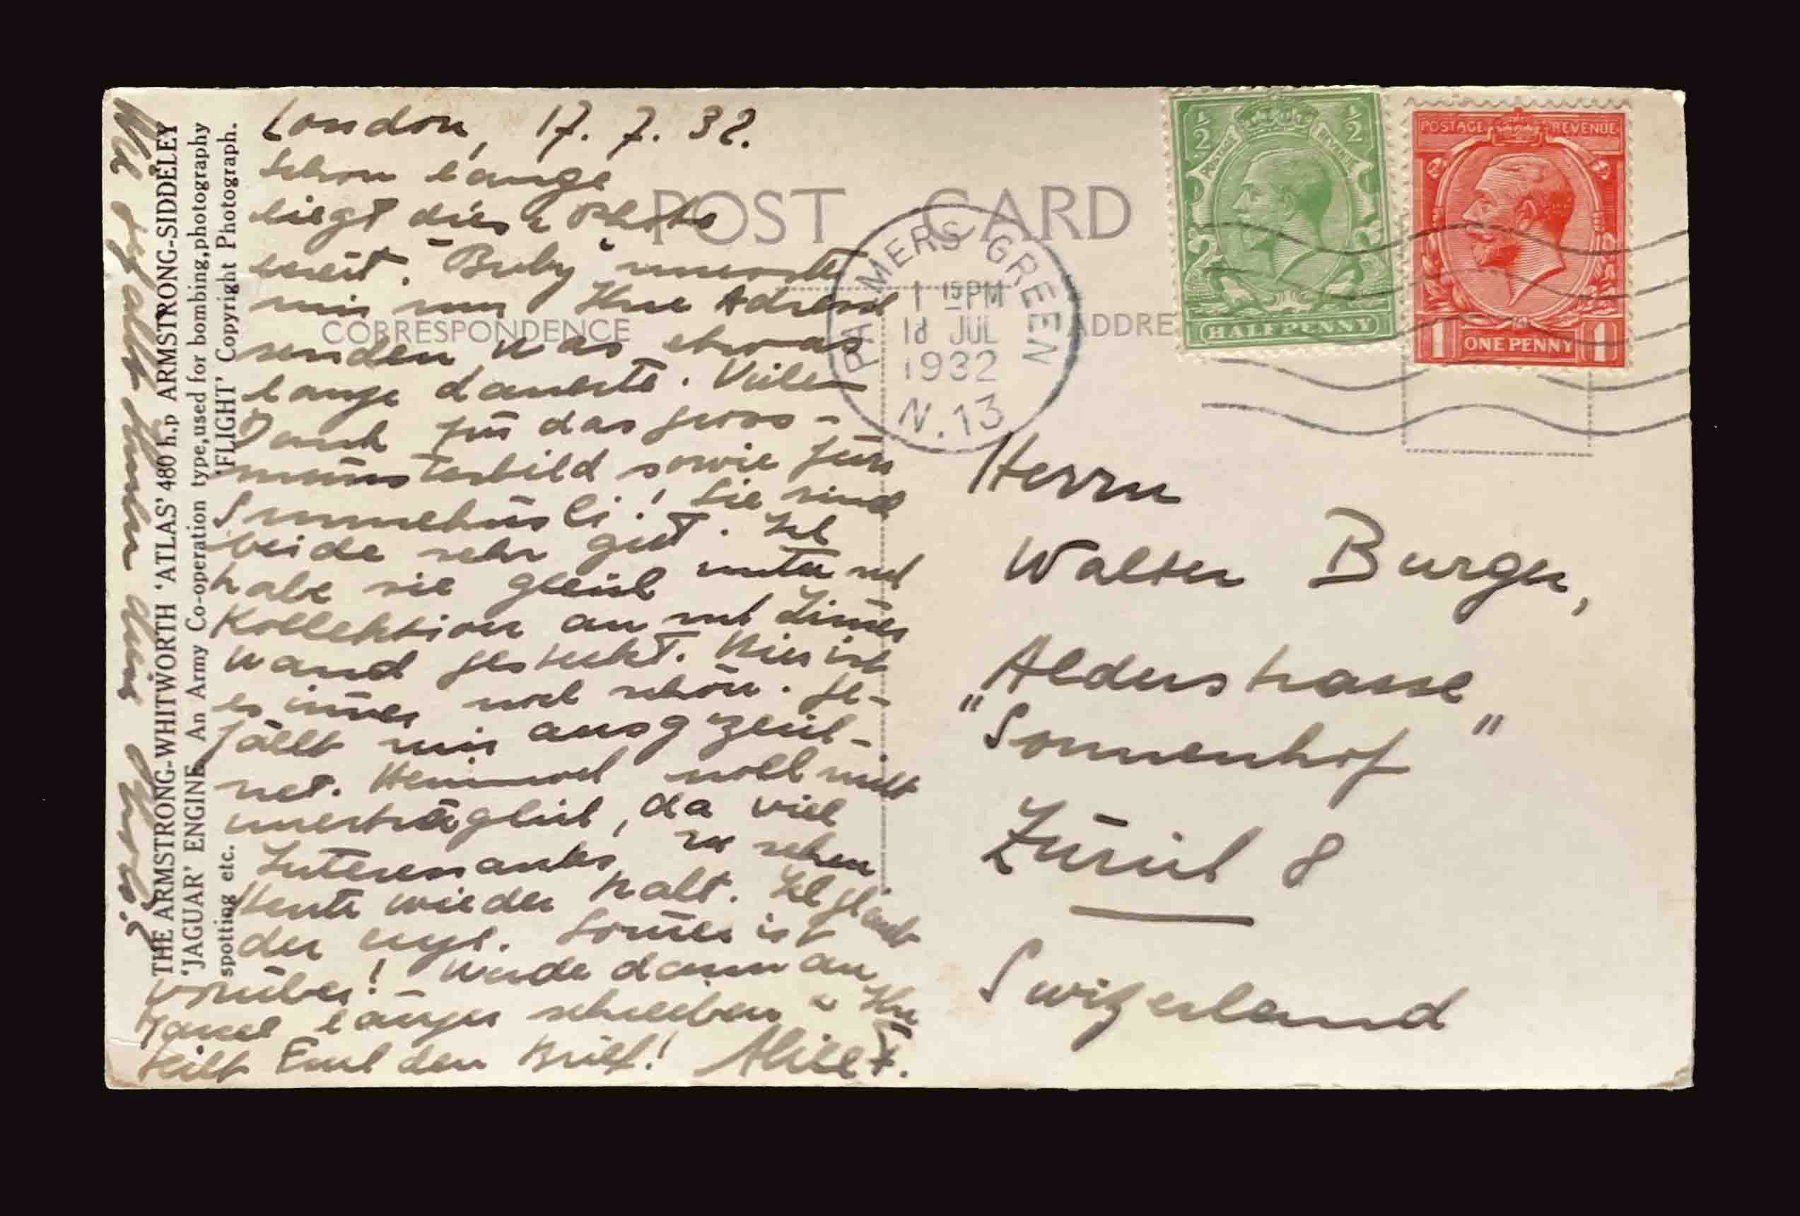 London, 17. 7. 32.
Schon lange
liegt diese Photo
bereit. "Buby" musste
mir nur Ihre Adresse
senden was etwas
lange dauerte. Vielen
Dank für das gross-
münsterbild sowie fürs
Sunnehüsli! Sie sind
beide sehr gut. Ich
habe sie gleich
Kollektion an
wand gesteckt. Hier ist
es immer noch schön. Ge-
fällt mir ausgezeich-
net. Heimweh noch nicht
unerträglich, da viel
Interessantes zu sehen
Heute wieder kalt. Ich glaube
der engl. Sommer ist
vorüber! Werde dann an
länger schreiben
teilt Emil den Brief! Alice F.
Wie gefällt Ihnen diese Photo?
THE ARMSTRONG-WHITWORTH 'ATLAS' 480 h.p ARMSTRONG-SIDDELEY
'JAGUAR' ENGINE. An Army Co-operation type, used for bombing, photography
spotting etc. 'FLIGHT' Copyright Photograph.
POST CARD
CORRESPONDENCE
ADDRE
PALMERS GREEN
1 15PM
18 JUL
1932
N.13
½ ½
POSTAGE REVENUE
HALFPENNY
POSTAGE REVENUE
1 ONE PENNY 1
Herrn
Walter Burger,
Alderstrasse
"Sonnenhof"
Zürich 8
Swizerland